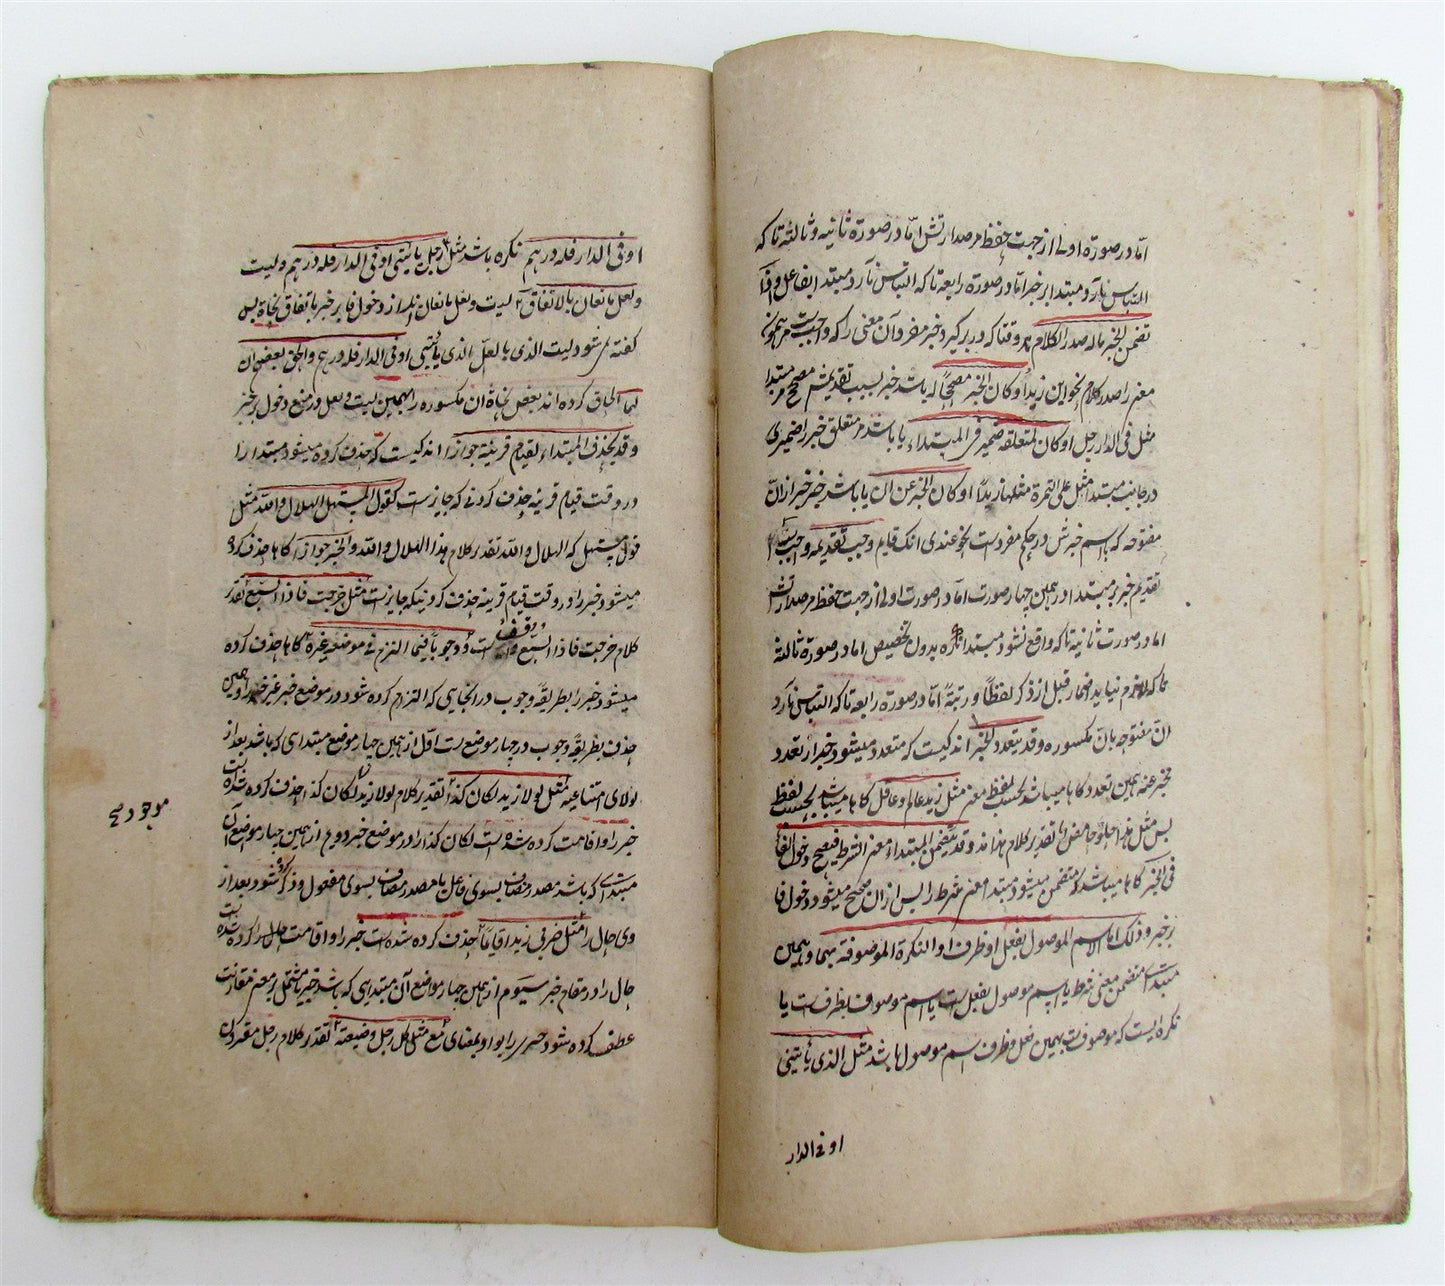 اما در صورة اولی از جهت حفظ مر صدارتش اما در صورة ثانیه و ثالثه تا که
التباس نیارد مبتدا بر خبر اما در صورة رابعه تا که التباس نیارد مبتدا بفاعل و اذا
تضمن الخبر ماله صدر الکلام هر وقتا که در بر گیرد خبر مفرد آن معنی را که واجبست مر همون
معنی را صدر کلام نحو این زید او کان الخبر مصححا له یا باشد خبر بسبب تقدیمش مصحح مر مبتدا
مثل فی الدار رجل او کان لمتعلقه ضمیر فی المبتداء یا باشد مر متعلق خبر را ضمیری
در جانب مبتدا مثل علی التمرة مثلها زبدا او کان الخبر عن ان یا باشد خبر خبر از ان
مفتوحه که با اسم خبرش در حکم مفرد است نحو عندی انک قایم وجب تقدیمه واجبست
تقدیم خبر بر مبتدا در همین چهار صورت اما در صورت اولی از جهت حفظ مر صدارتش
اما در صورت ثانیه تا که واقع نشود مبتدا نکره بدون تخصیص اما در صورة ثالثه
تا که لازم نیاید اضمار قبل از ذکر لفظا و رتبة اما در صورة رابعه تا که التباس نیارد
ان مفتوحه بان مکسوره و قد یتعدد الخبر اند کیست که متعدد میشود خبر از تعدد
مخبر عنه همین تعدد کاها میباشد بحسب لفظ معنی مثل زید عالم و عاقل کاها میباشد بحسب لفظ
بس مثل هذا حلو حامض تقدیر کلام هذا مذ و قد یتضمن المبتداء معنی الشرط فیصح دخول الفا
فی الخبر کاها میباشد که متضمن میشود مبتدا معنی شرط را پس از آن صحیح میشود دخول فا
بر خبر و ذلک اما الاسم الموصول بفعل او ظرف او النکرة الموصوفة بهما و همین
مبتدا متضمن معنی شرط یا اسم موصول بفعل است یا اسم موصوف بظرفست یا
نکره ایست که موصوفست بهمین فعل و ظرف اسم موصول باشد مثل الذی یأتینی
او فی الدار
او فی الدار فله درهم نکره باشد مثل رجل یأتینی او فی الدار فله درهم و لیت
و لعل مانعان بالاتفاق لیت و لعل مانعان اند از دخول فا بر خبر باتفاق نحاة پس
گفته نمی شود لیت الذی یا لعل الذی یأتینی او فی الدار فله درهم والحق بعضهم ان
بهما الحاق کرده اند بعض نحاة ان مکسوره را بهمین لیت و لعل در منع دخول بر خبر
و قد یحذف المبتداء لقیام قرینة جوازا اند کیست که حذف کرده میشود مبتدا را
در وقت قیام قرینه حذف کردنی که جایز است کقول المستهل الهلال والله مثل
قول مستهل که الهلال والله تقدیر کلام هذا الهلال والله والخبر جوازا کاها حذف کرده
میشود خبر را در وقت قیام قرینه حذف کردنیکه جایز است مثل خرجت فاذا السبع تقدیر
کلام خرجت فاذا السبع واقف است و وجوبا فیما التزم فی موضعه غیره کاها حذف کرده
میشود خبر را بطریقه وجوب در آنجایی که التزام کرده شود در موضع خبر غیر خبر را و همین
حذف بطریقه وجوب در چهار موضع است اول از همین چهار موضع مبتدای که باشد بعد از
لولای امتناعیه مثل لولا زید لکان کذا تقدیر کلام لولا زید لکان کذا حذف کرده شده است
خبر را و اقامت کرده شده است لکان کذا را در موضع خبر دوم از همین چهار موضع آن
مبتدای که باشد مصدر مضاف بسوی فاعل یا مصدر مضاف بسوی مفعول و ذکر کرده شود بعد از
وی حال را مثل ضربی زیدا قایما حذف کرده شده است خبر را و اقامت حال را کرده شده است
حال را در مقام خبر سیوم از همین چهار مواضع آن مبتدای که باشد خبر یا مشتمل بر معنی مقارنت
عطف کرده شود چیزی را بواو بمعنای مع مثل کل رجل وضیعته تقدیر کلام رجل مقرون
موجود صح